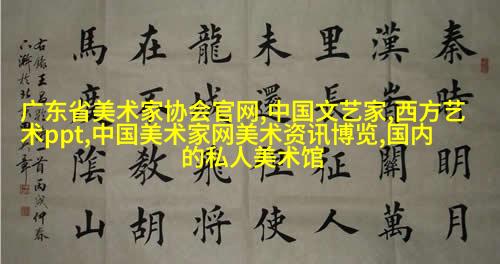 广东省美术家协会官网,中国文艺家,西方艺
术ppt,中国美术家网美术资讯博览,国内
的私人美术馆
秦時明月
漢時關萬
里長征人
未還但使
龍城飛將
在不教胡
馬度陰山
首丙戌仲春